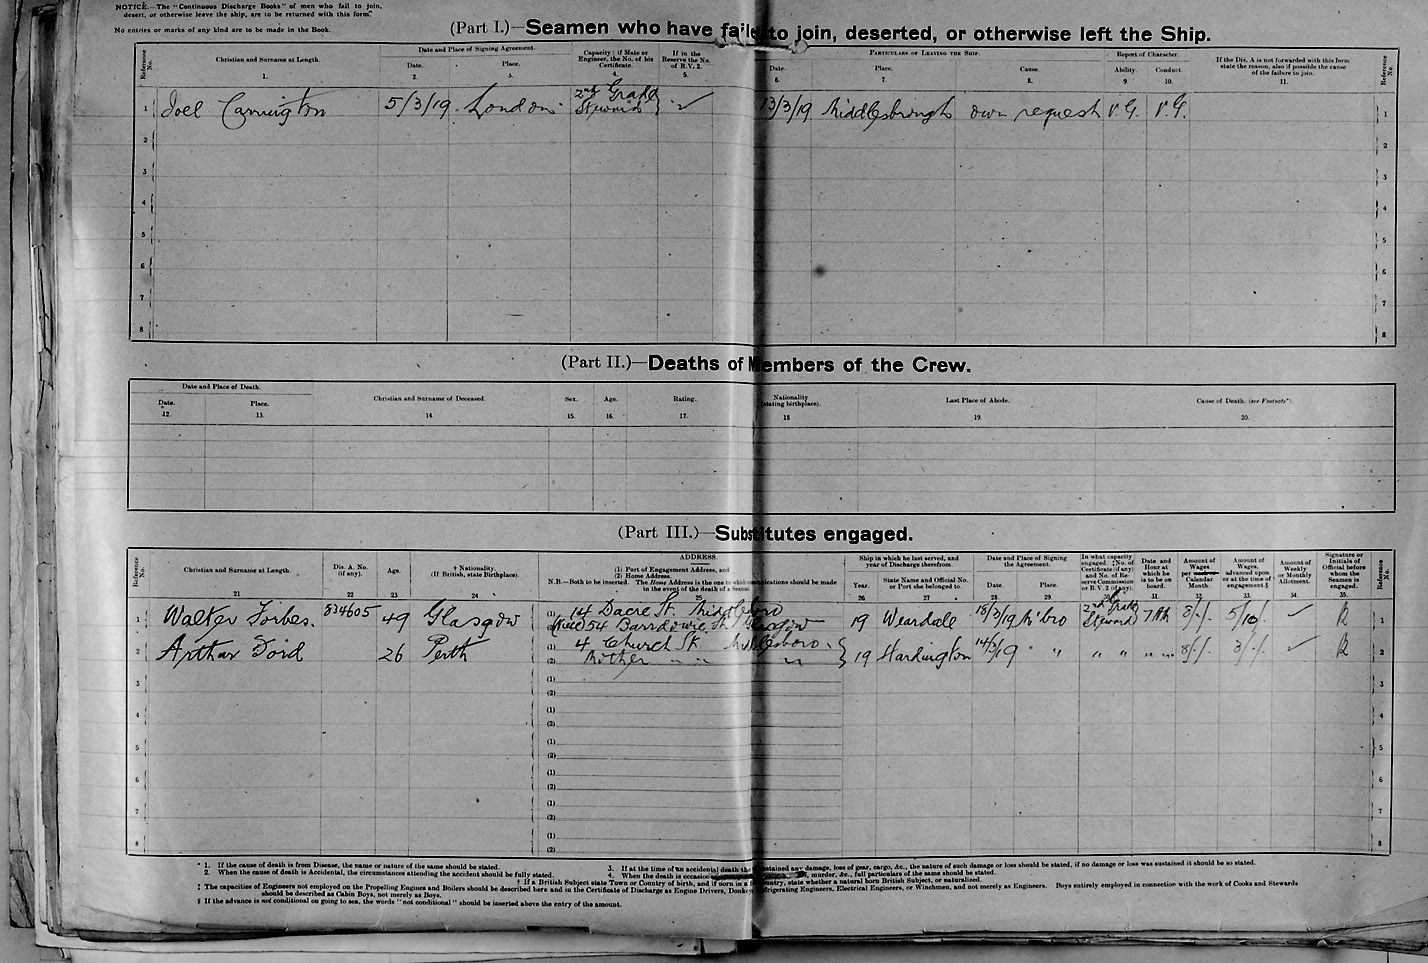 NOTICE.—The "Continuous Discharge Books" of men who fail to join,
desert, or otherwise leave the ship, are to be returned with this form.
No entries or marks of any kind are to be made in the Book.
(Part I.)—Seamen who have failed to join, deserted, or otherwise left the Ship.
Reference No. Christian and Surname at Length. Date and Place of Signing Agreement. Capacity; if Mate or Engineer, the No. of his Certificate. If in the Reserve the No. of R.V. 2. Particulars of Leaving the Ship. Report of Character. If the Dis. A is not forwarded with this form state the reason, also if possible the cause of the failure to join. Reference No.
Date. Place. Date. Place. Cause. Ability. Conduct.
1. 2. 3. 4. 5. 6. 7. 8. 9. 10. 11.
1 Joel Carrington 5/3/19 London 2nd Grade Steward 13/3/19 Middlesbrough own request V.G. V.G. 1
2 2
3 3
4 4
5 5
6 6
7 7
8 8
(Part II.)—Deaths of Members of the Crew.
Date and Place of Death. Christian and Surname of Deceased. Sex. Age. Rating. Nationality (stating birthplace). Last Place of Abode. Cause of Death. (see Footnote*).
Date. Place.
12. 13. 14. 15. 16. 17. 18 19. 20.
(Part III.)—Substitutes engaged.
Reference No. Christian and Surname at Length. Dis. A. No. (if any). Age. † Nationality. (If British, state Birthplace). ADDRESS. (1) Port of Engagement Address, and (2) Home Address. N.B.—Both to be inserted. The Home Address is the one to which communications should be made in the event of the death of a Seaman. Ship in which he last served, and year of Discharge therefrom. Date and Place of Signing the Agreement. In what capacity engaged. ‡No. of Certificate (if any) and No. of Reserve Commission or R.V. 2 (if any). Date and Hour at which he is to be on board. Amount of Wages per Calendar Month. Amount of Wages, advanced upon or at the time of engagement.§ Amount of Weekly or Monthly Allotment. Signature or Initials of Official before whom the Seaman is engaged. Reference No.
Year. State Name and Official No. or Port she belonged to. Date. Place.
21 22 23 24 25 26 27 28. 29. 31. 32. 33. 34. 35.
1 Walter Forbes. 834605 49 Glasgow (1) 14 Dacre St. Middlesboro 19 Weardale 18/3/19 M'bro 2nd Grade Steward 8/./. 5/10/. 1
54 St. Glasgow
2 Arthur Ford 26 Perth (1) 4 Church St. Middlesboro. 19 Hardington 14/3/19 " " " " 8/./. 3/./. 2
(2) Mother " " "
(1) 3
(2)
(1) 4
(2)
5 (1) 5
(2)
6 (1) 6
(2)
7 (1) 7
(2)
8 (1) 8
(2)
* 1. If the cause of death is from Disease, the name or nature of the same should be stated.
2. When the cause of death is Accidental, the circumstances attending the accident should be fully stated.
3. If at the time of an accidental death the sustained any damage, loss of gear, cargo, &c., the nature of such damage or loss should be stated, if no damage or loss was sustained it should be so stated.
4. When the death is occasioned murder, &c., full particulars of the same should be stated.
† If a British Subject state Town or Country of birth, and if born in a country, state whether a natural born British Subject, or naturalized.
‡ The capacities of Engineers not employed on the Propelling Engines and Boilers should be described here and in the Certificate of Discharge as Engine Drivers, Donkey Refrigerating Engineers, Electrical Engineers, or Winchmen, and not merely as Engineers. Boys entirely employed in connection with the work of Cooks and Stewards
should be described as Cabin Boys, not merely as Boys.
§ If the advance is not conditional on going to sea, the words "not conditional" should be inserted above the entry of the amount.